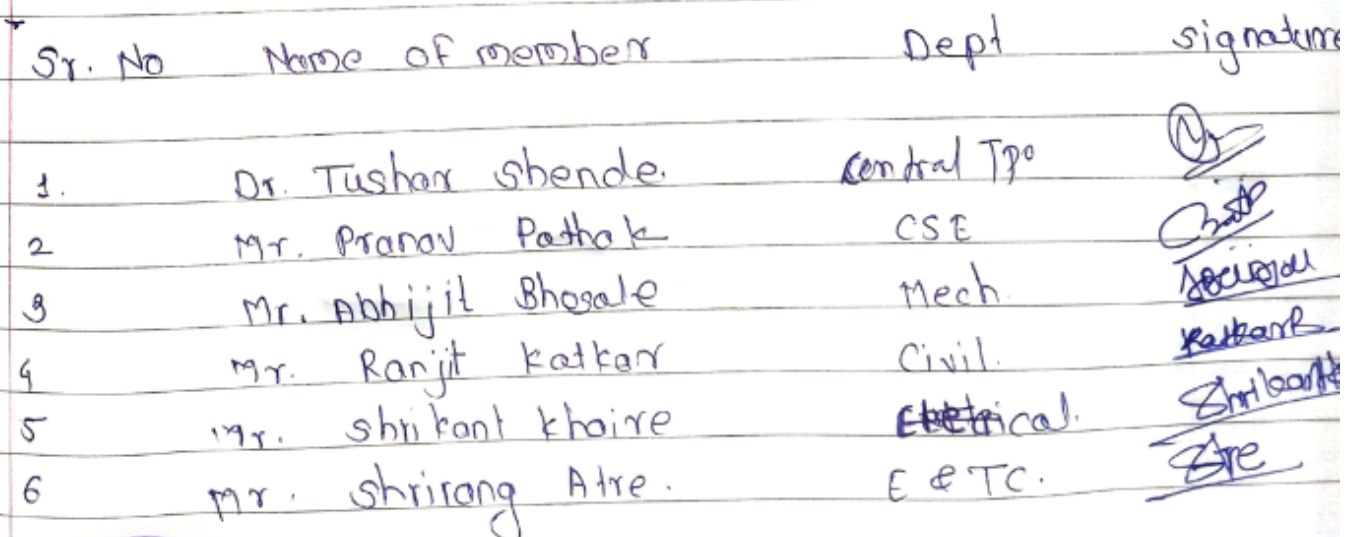 Sr. No Name of member Dept signature
1. Dr. Tushar Shende. Central TPO
2 Mr. Pranav Pathak CSE
3 Mr. Abhijit Bhosale Mech.
4 Mr. Ranjit Katkar Civil. Katkar
5 Mr. Shrikant Khaire Eletrical. Shrikant
6 Mr. Shrirang Atre. E & TC. Atre